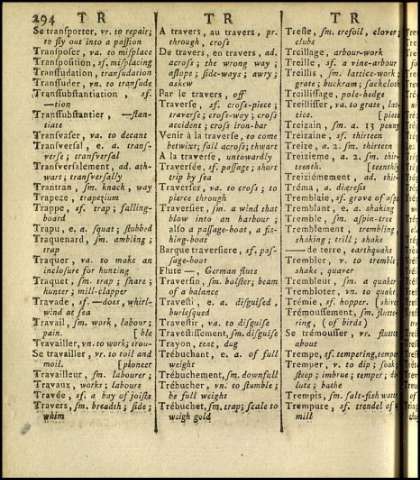 294 T R
T R
T R
Se transporter, vr. to repair;
to fly out into a passion
Transposer, va. to misplace
Transposition, sf. misplacing
Transsudation, transudation
Transsuder, vn. to transude
Transsubstantiation, sf.
—tion
Transsubstantier, —stan-
tiate
Transvaser, va. to decant
Transversal, e. a. trans-
verse; transversal
Transversalement, ad. ath-
wart; transversally
Trantran, sm. knack, way
Trapeze, trapezium
Trappe, sf. trap; falling-
board
Trapu, e. a. squat; stubbed
Traquenard, sm. ambling;
trap
Traquer, va. to make an
inclosure for hunting
Traquet, sm. trap; snare;
hunter; mill-clapper
Travade, sf. —does, whirl-
wind at sea
Travail, sm. work, labour;
pain. [ble
Travailler, vn. to work; trou-
Se travailler, vr. to toil and
moil. [pioneer
Travailleur, sm. labourer;
Travaux, works; labours
Travée, sf. a bay of joists
Travers, sm. breadth; side;
whim
A travers, au travers, pr.
through, cross
De travers, en travers, ad.
across; the wrong way;
aslope; side-ways; awry;
askew
Par le travers, off
Traverse, sf. cross-piece;
traverse; cross-way; cross
accident; cross iron-bar
Venir à la traverse, to come
betwixt; fall across; thwart
A la traverse, untowardly
Traversée, sf. passage; short
trip by sea
Traverser, va. to cross; to
pierce through
Traversier, sm. a wind that
blow into an harbour;
also a passage-boat, a fis-
hing-boat
Barque traversiere, sf. pas-
sage-boat
Flute —, German flute
Traversin, sm. bolster; beam
of a balance
Travesti, e. a. disguised,
burlesqued
Travestir, va. to disguise
Travestissement, sm. disguise
Trayon, teat, dug
Trébuchant, e. a. of full
weight
Trébuchement, sm. downfall
Trébucher, vn. to stumble;
be full weight
Trébuchet, sm. trap; scale to
weigh gold
Trefle, sm. trefoil, clover;
clubs
Treillage, arbour-work
Treille, sf. a vine-arbour
Treillis, sm. lattice-work;
grate; buckram; sackcloth
Treillissage, pole-hedge
Treillisser, va. to grate, lat-
tice. [piece
Treizain, sm. a 13 penny
Treizaine, sf. thirteen
Treize, a. 2. sm. thirteen
Treizième, a. 2. sm. thir-
teenth. [teenthly
Treizièmement, ad. thir-
Tréma, a. diæresis
Tremblaie, sf. grove of asps
Tremblant, e. a. shaking
Tremble, sm. aspin-tree
Tremblement, trembling,
shaking; trill; shake
— de terre, earthquake
Trembler, vn. to tremble,
shake, quaver
Trembleur, sm. a quaker
Trembloter, vn. to quake
Trémie, sf. hopper.
Trémoussement, sm. flutte-
ring, (of birds)
Se trémousser, vr. flutter
about
Trempe, sf. tempering, temper
Tremper, v. to dip; soak;
steep; imbrue; temper; di-
lute; bathe
Trempis, sm. salt-fish water
Trempure, sf. trendel of a
mill